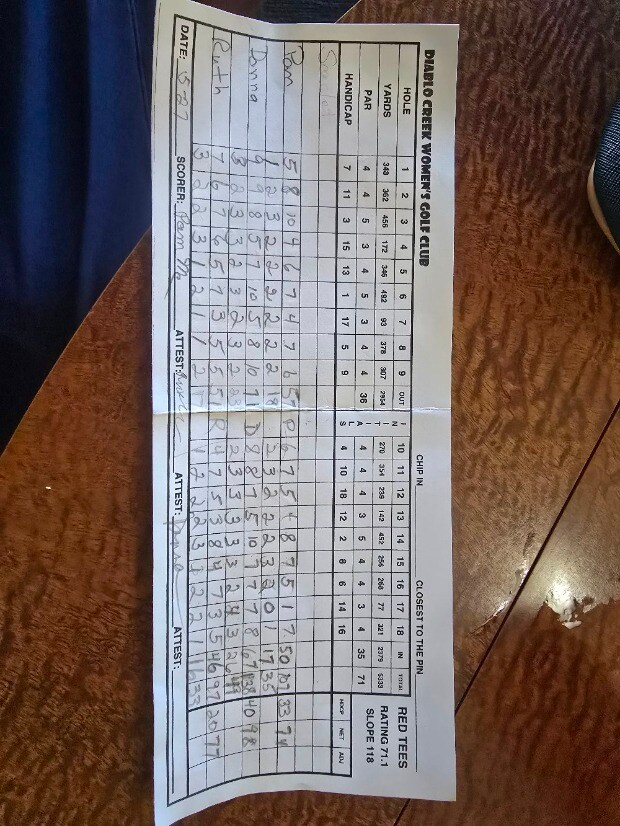 DIABLO CREEK WOMEN'S GOLF CLUB CHIP IN CLOSEST TO THE PIN RED TEES
HOLE 1 2 3 4 5 6 7 8 9 OUT INITIALS 10 11 12 13 14 15 16 17 18 IN TOTAL RATING 71.1
YARDS 348 362 456 172 346 492 93 378 307 2954 270 354 239 142 452 256 268 77 321 2379 5333 SLOPE 118
PAR 4 4 5 3 4 5 3 4 4 36 4 4 4 3 5 4 4 3 4 35 71
HANDICAP 7 11 3 15 13 1 17 5 9 4 10 18 12 2 8 6 14 16 HDCP NET ADJ
Pam 5 8 10 4 6 7 4 7 6 57 P 6 7 5 8 7 5 1 7 50 107 33 74
1 2 3 2 2 2 2 2 2 18 2 3 2 2 2 3 2 0 1 17 35
Donna 9 9 8 5 7 10 5 8 10 71 D 8 8 7 5 10 7 7 7 8 67 138 40 98
3 2 3 3 2 3 2 3 2 2 3 3 3 3 3 2 4 3 26
Ruth 7 6 7 6 5 7 3 5 5 51 R 4 7 5 3 8 4 7 3 5 46 97 20 77
3 2 2 3 1 2 1 1 2 17 1 2 2 2 3 1 2 2 1 16 33
DATE: 5-27 SCORER: Pam ATTEST: ATTEST: Donna ATTEST: